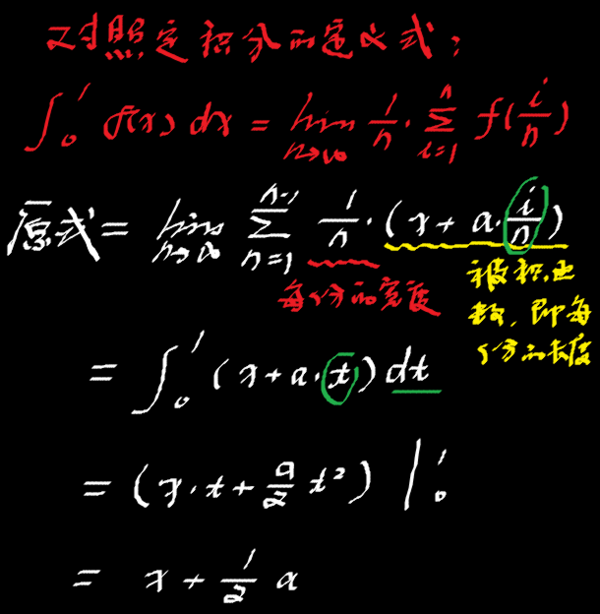 对照定积分的定义式:
∫₀¹ f(x) dx = lim_{n→∞} 1/n · ∑_{i=1}^{n} f(i/n)
原式 = lim_{n→∞} ∑_{n=1}^{n-1} 1/n · (x + a · i/n)
每份的宽度
被积函
数,即每
份的长度
= ∫₀¹ (x + a · t) dt
= (x · t + a/2 t²) |₀¹
= x + 1/2 a